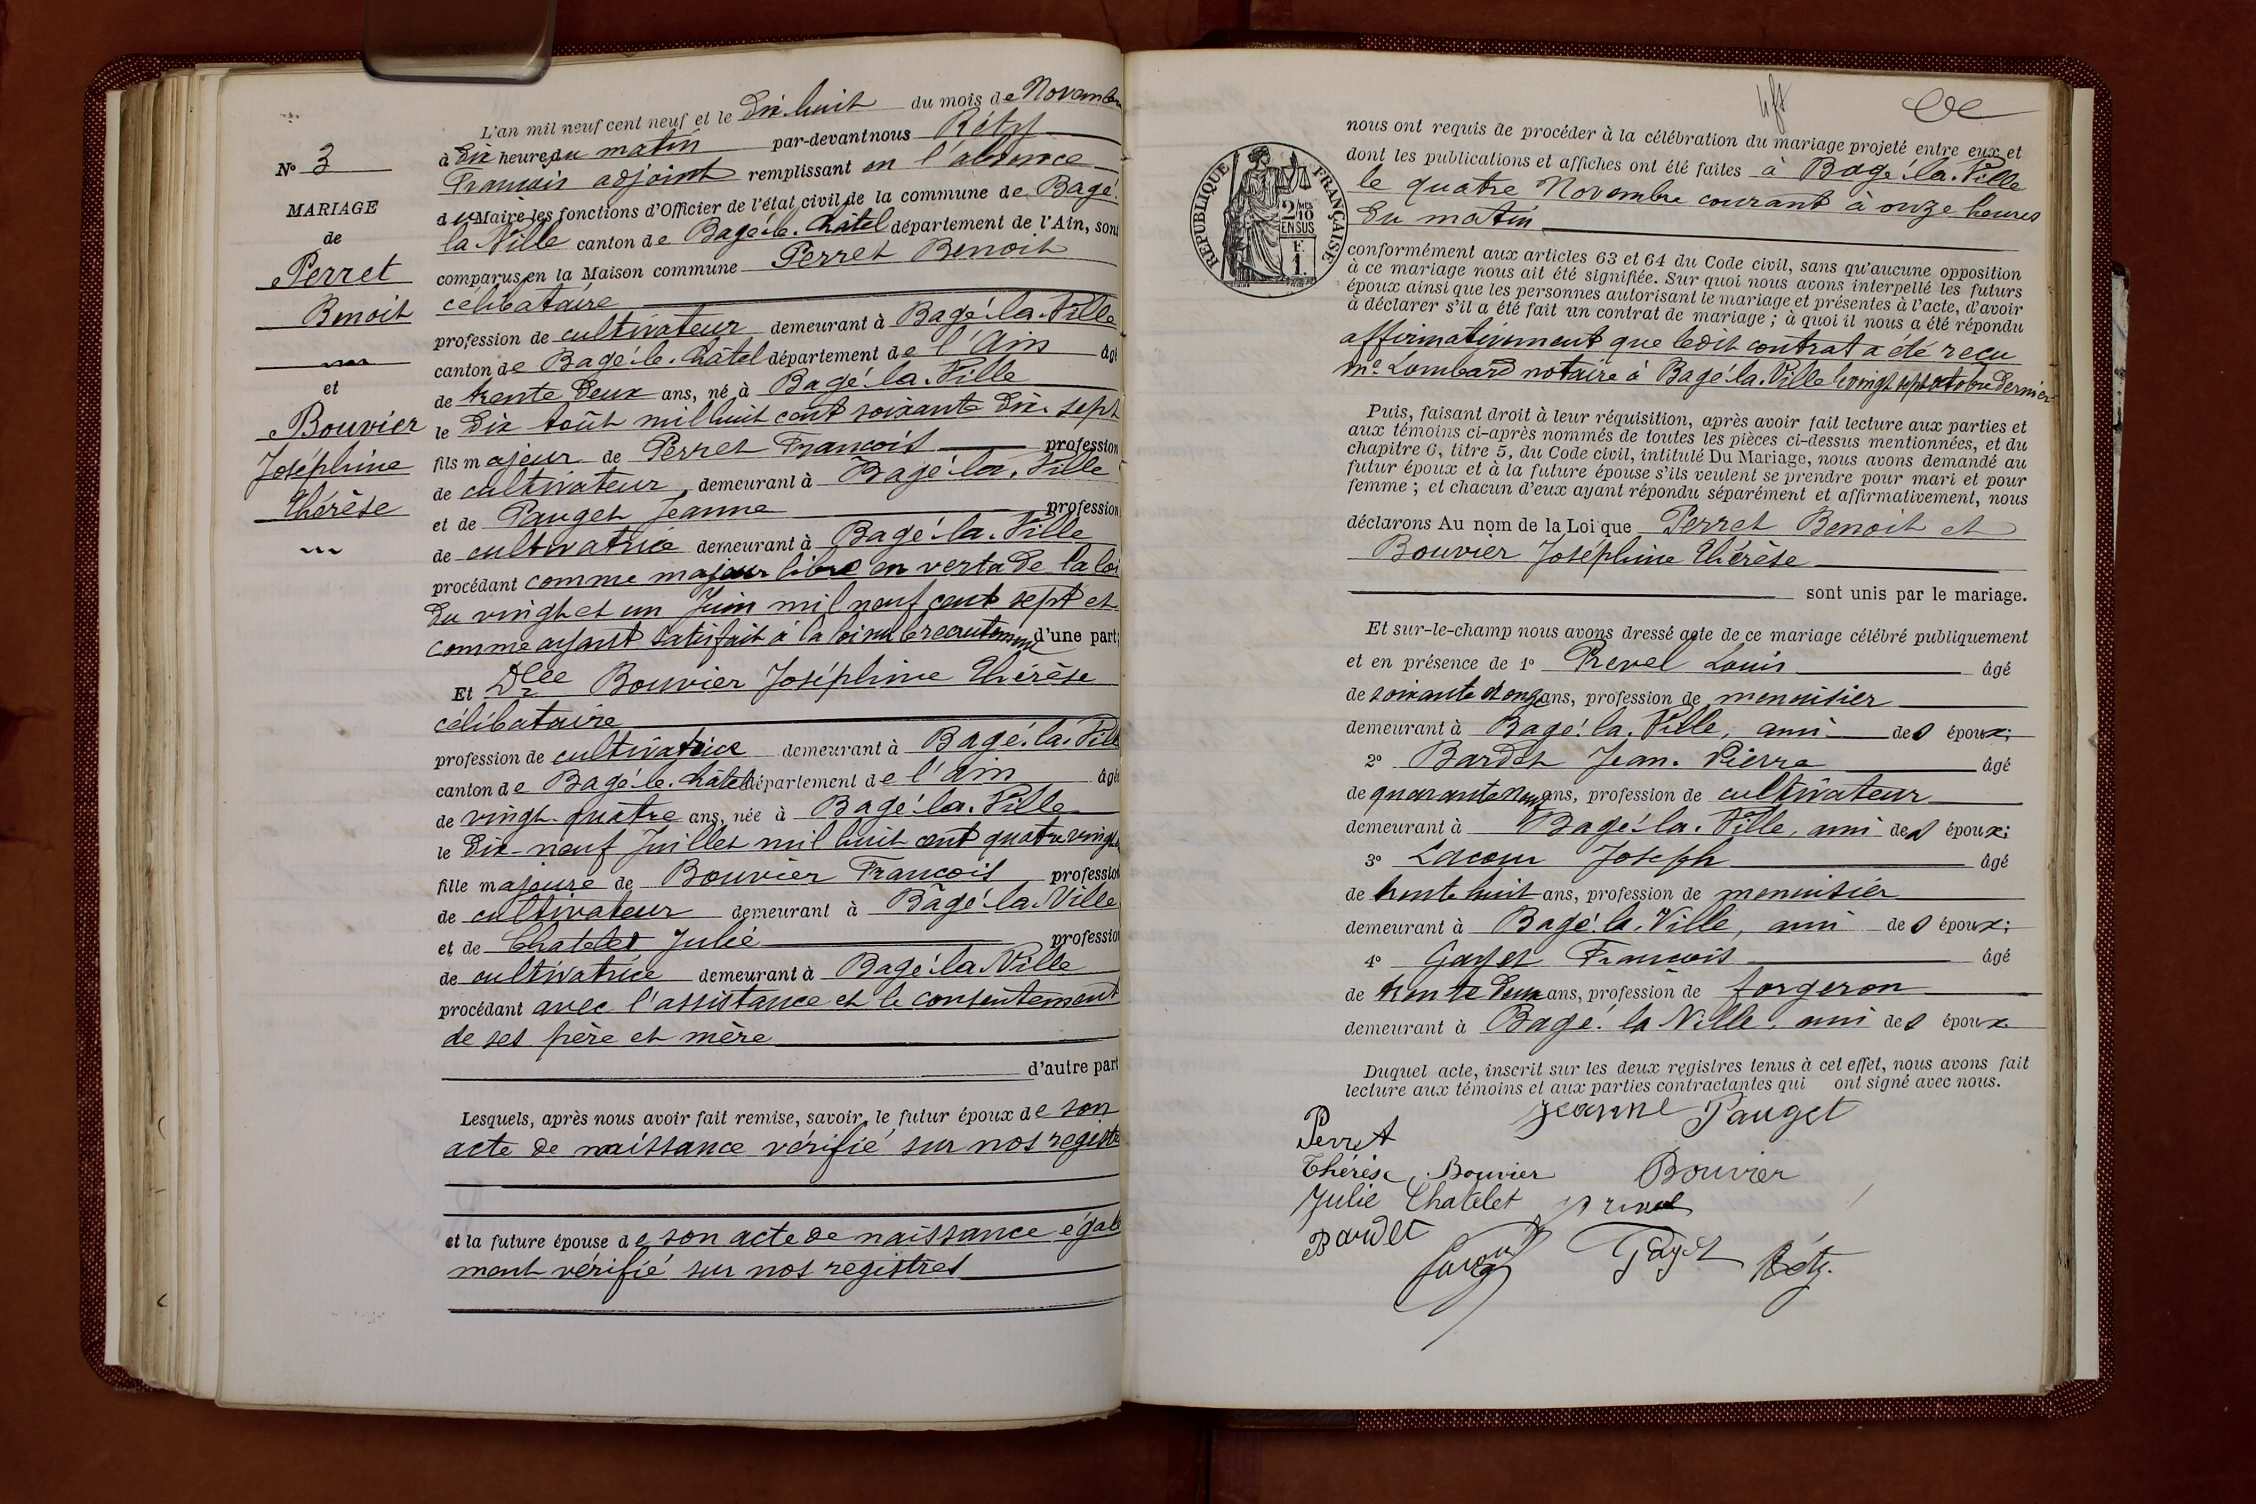 L'an mil neuf cent neuf et le Dix huit du mois de Novembre
à Dix heures du matin par-devant nous Réty
François adjoint remplissant en l'absence
du Maire les fonctions d'Officier de l'état civil de la commune de Bagé-
la Ville canton de Bagé-le-Châtel département de l'Ain, sont
comparus en la Maison commune Perret Benoit
célibataire
profession de cultivateur demeurant à Bagé-la-Ville
canton de Bagé-le-Châtel département de l'Ain âgé
de trente Deux ans, né à Bagé-la-Ville
le Dix août mil huit cent soixante Dix-sept
fils majeur de Perret François profession
de cultivateur demeurant à Bagé-la-Ville
et de Pauget Jeanne profession
de cultivatrice demeurant à Bagé-la-Ville
procédant comme majeur libre en vertu De la loi
Du vingt et un Juin mil neuf cent sept et
comme ayant satisfait à la loi sur le recrutement d'une part;
Et Dlle Bouvier Joséphine Thérèse
célibataire
profession de cultivatrice demeurant à Bagé-la-Ville
canton de Bagé-le-Châtel département de l'Ain âgée
de vingt-quatre ans, née à Bagé-la-Ville
le Dix-neuf Juillet mil huit cent quatre vingt
fille majeure de Bouvier François profession
de cultivateur demeurant à Bagé-la-Ville
et de Chatelet Julie profession
de cultivatrice demeurant à Bagé-la-Ville
procédant avec l'assistance et le consentement
de ses père et mère
d'autre part
Lesquels, après nous avoir fait remise, savoir, le futur époux de son
acte de naissance vérifié sur nos registres
et la future épouse de son acte de naissance égale
ment vérifié sur nos registres
N° 3
MARIAGE
de
Perret
Benoit
et
Bouvier
Joséphine
Thérèse
RÉPUBLIQUE FRANÇAISE
2 MES
10
EN SUS
F.
1.
nous ont requis de procéder à la célébration du mariage projeté entre eux et
dont les publications et affiches ont été faites à Bagé-la-Ville
le quatre Novembre courant à onze heures
Du matin
conformément aux articles 63 et 64 du Code civil, sans qu'aucune opposition
à ce mariage nous ait été signifiée. Sur quoi nous avons interpellé les futurs
époux ainsi que les personnes autorisant le mariage et présentes à l'acte, d'avoir
à déclarer s'il a été fait un contrat de mariage; à quoi il nous a été répondu
affirmativement que ledit contrat a été reçu
Me Lombard notaire à Bagé-la-Ville le vingt sept octobre Dernier
Puis, faisant droit à leur réquisition, après avoir fait lecture aux parties et
aux témoins ci-après nommés de toutes les pièces ci-dessus mentionnées, et du
chapitre 6, titre 5, du Code civil, intitulé Du Mariage, nous avons demandé au
futur époux et à la future épouse s'ils veulent se prendre pour mari et pour
femme; et chacun d'eux ayant répondu séparément et affirmativement, nous
déclarons Au nom de la Loi que Perret Benoit et
Bouvier Joséphine Thérèse
sont unis par le mariage.
Et sur-le-champ nous avons dressé acte de ce mariage célébré publiquement
et en présence de 1° Prevel Louis âgé
de soixante et onze ans, profession de menuisier
demeurant à Bagé-la-Ville, ami des époux;
2° Bardet Jean-Pierre âgé
de quarante neuf ans, profession de cultivateur
demeurant à Bagé-la-Ville, ami des époux;
3° Lacour Joseph âgé
de trente huit ans, profession de menuisier
demeurant à Bagé-la-Ville, ami des époux;
4° Gayet François âgé
de trente Deux ans, profession de forgeron
demeurant à Bagé-la Ville, ami des époux
Duquel acte, inscrit sur les deux registres tenus à cet effet, nous avons fait
lecture aux témoins et aux parties contractantes qui ont signé avec nous.
Jeanne Pauget
Perret
Thérèse Bouvier Bouvier
Julie Chatelet Prevel
Bardet
Lacour Gayet Réty.